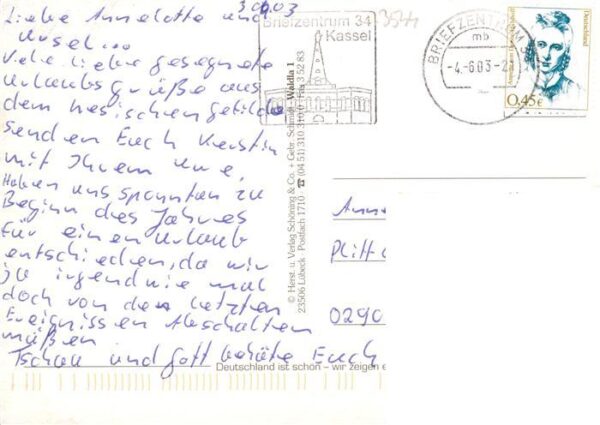 30.5.03
Liebe Annelotte und
Ursel...
Viele liebe gesegnete
Urlaubsgrüße aus
dem hesischen gefilde
senden Euch Kerstin
mit Ihrem Uwe,
Haben uns spontan zu
Beginn des Jahres
für einen Urlaub
entschieden, da wir
ja irgendwie mal
doch von den letzten
Ereignissen Abschalten
müßen
Tschau und Gott behüte Euch
Briefzentrum 34
Kassel
BRIEFZENTRUM
mb
-4.-6.03-2
Deutschland
0,45€
© Herst. u. Verlag Schöning & Co. + Gebr. Schmidt · Waldla 1
23506 Lübeck · Postfach 1710 · ☎ (04 51) 310 310 · Fax 3 52 83
Anne
Plitt
0290
Deutschland ist schön – wir zeigen e